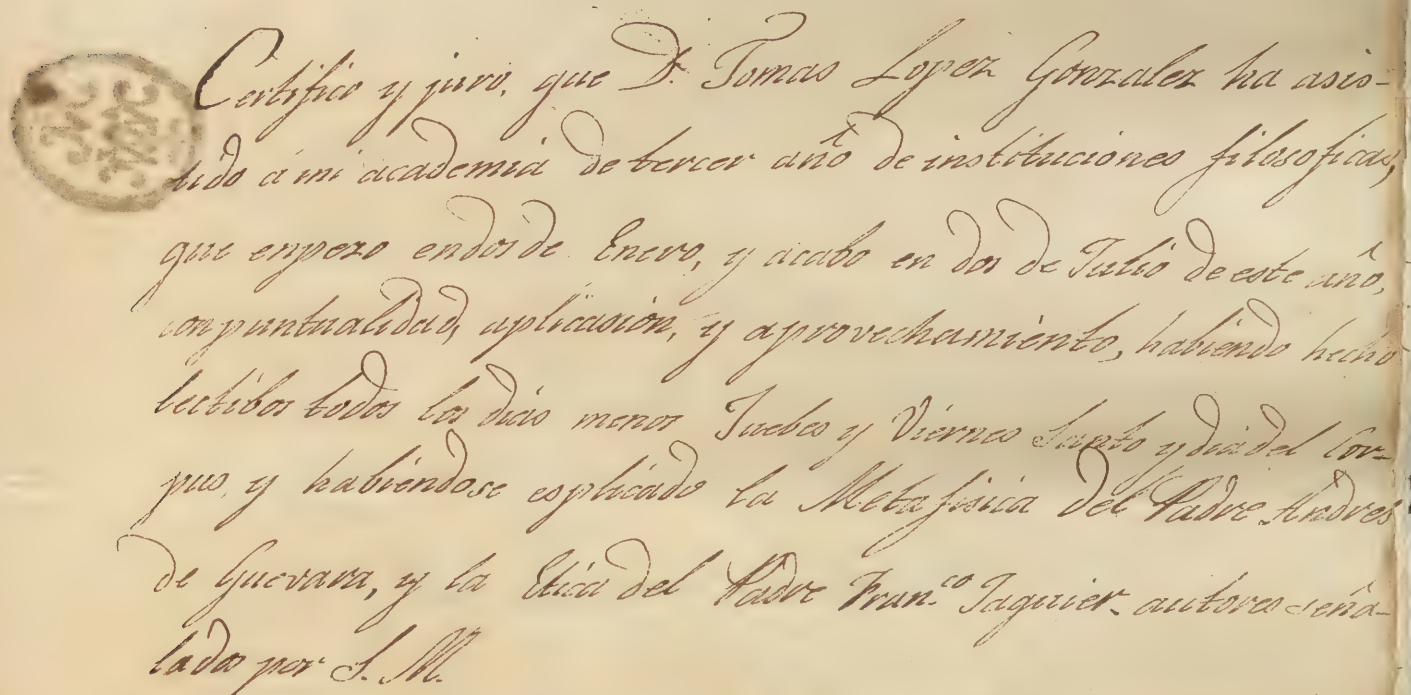 Certifico y juro, que Dn. Tomas Lopez Gonzalez ha asis-
tido á mi academia de tercer año de instituciones filosoficas,
que enpezo en dos de Enero, y acabo en dos de Julio de este año,
con puntualidad, aplicasion, y aprovechamiento, habiendo hecho
lectibos todos los dias menos Juebes y Viernes Santo y dia del Cor-
pus, y habiendose esplicado la Metafisica del Padre Andres
de Guevara, y la Etica del Padre Fran.co Jaquier autores seña-
lados por S. M.